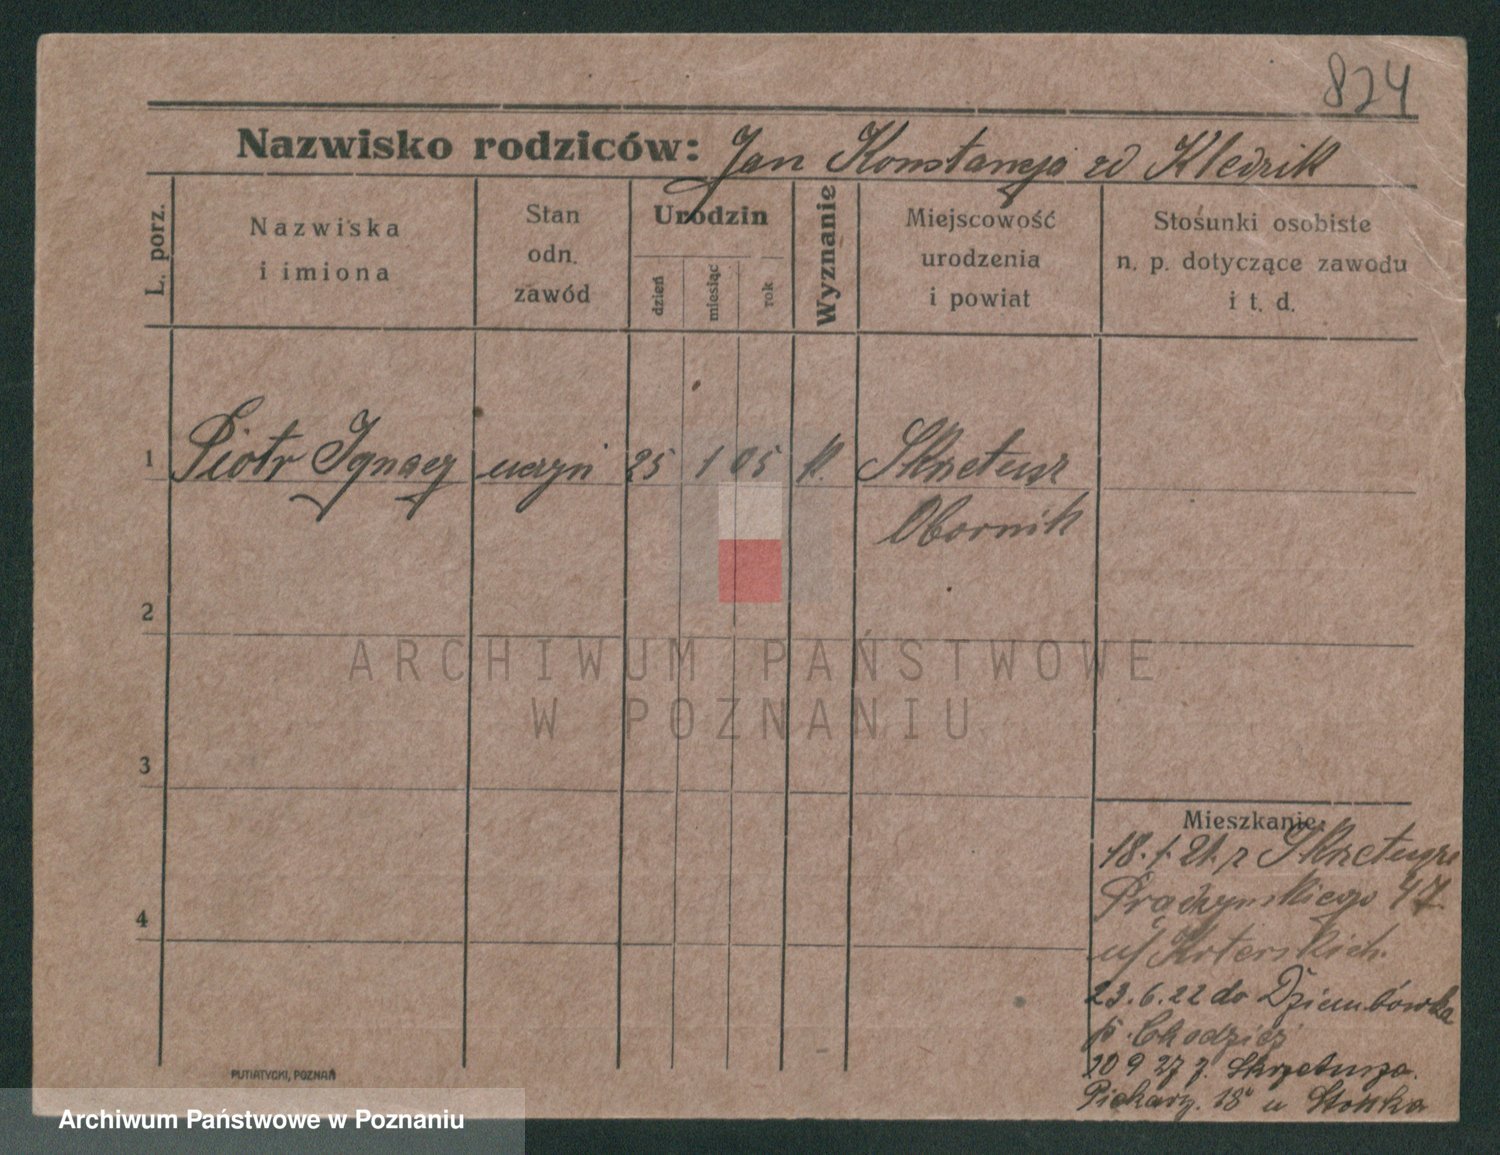 824
Nazwisko rodziców: Jan Konstancja zd Kledzik
L. porz.
Nazwiska
i imiona
Stan
odn.
zawód
Urodzin
dzień
miesiąc
rok
Wyznanie
Miejscowość
urodzenia
i powiat
Stosunki osobiste
n. p. dotyczące zawodu
i t. d.
1 Piotr Ignacy uczyń 25 1 05 k. Skrzetusz
Obornik
2
ARCHIWUM PAŃSTWOWE
W POZNANIU
3
Mieszkanie:
18.1.21. z Skrzetusza
Prądzyńskiego 47
u/
4
23.6.22 do Dziembówka
p. Chodzież
20 9 27 z. Skrzetusza.
Piekary. 18 u
PUTIATYCKI, POZNAŃ
Archiwum Państwowe w Poznaniu